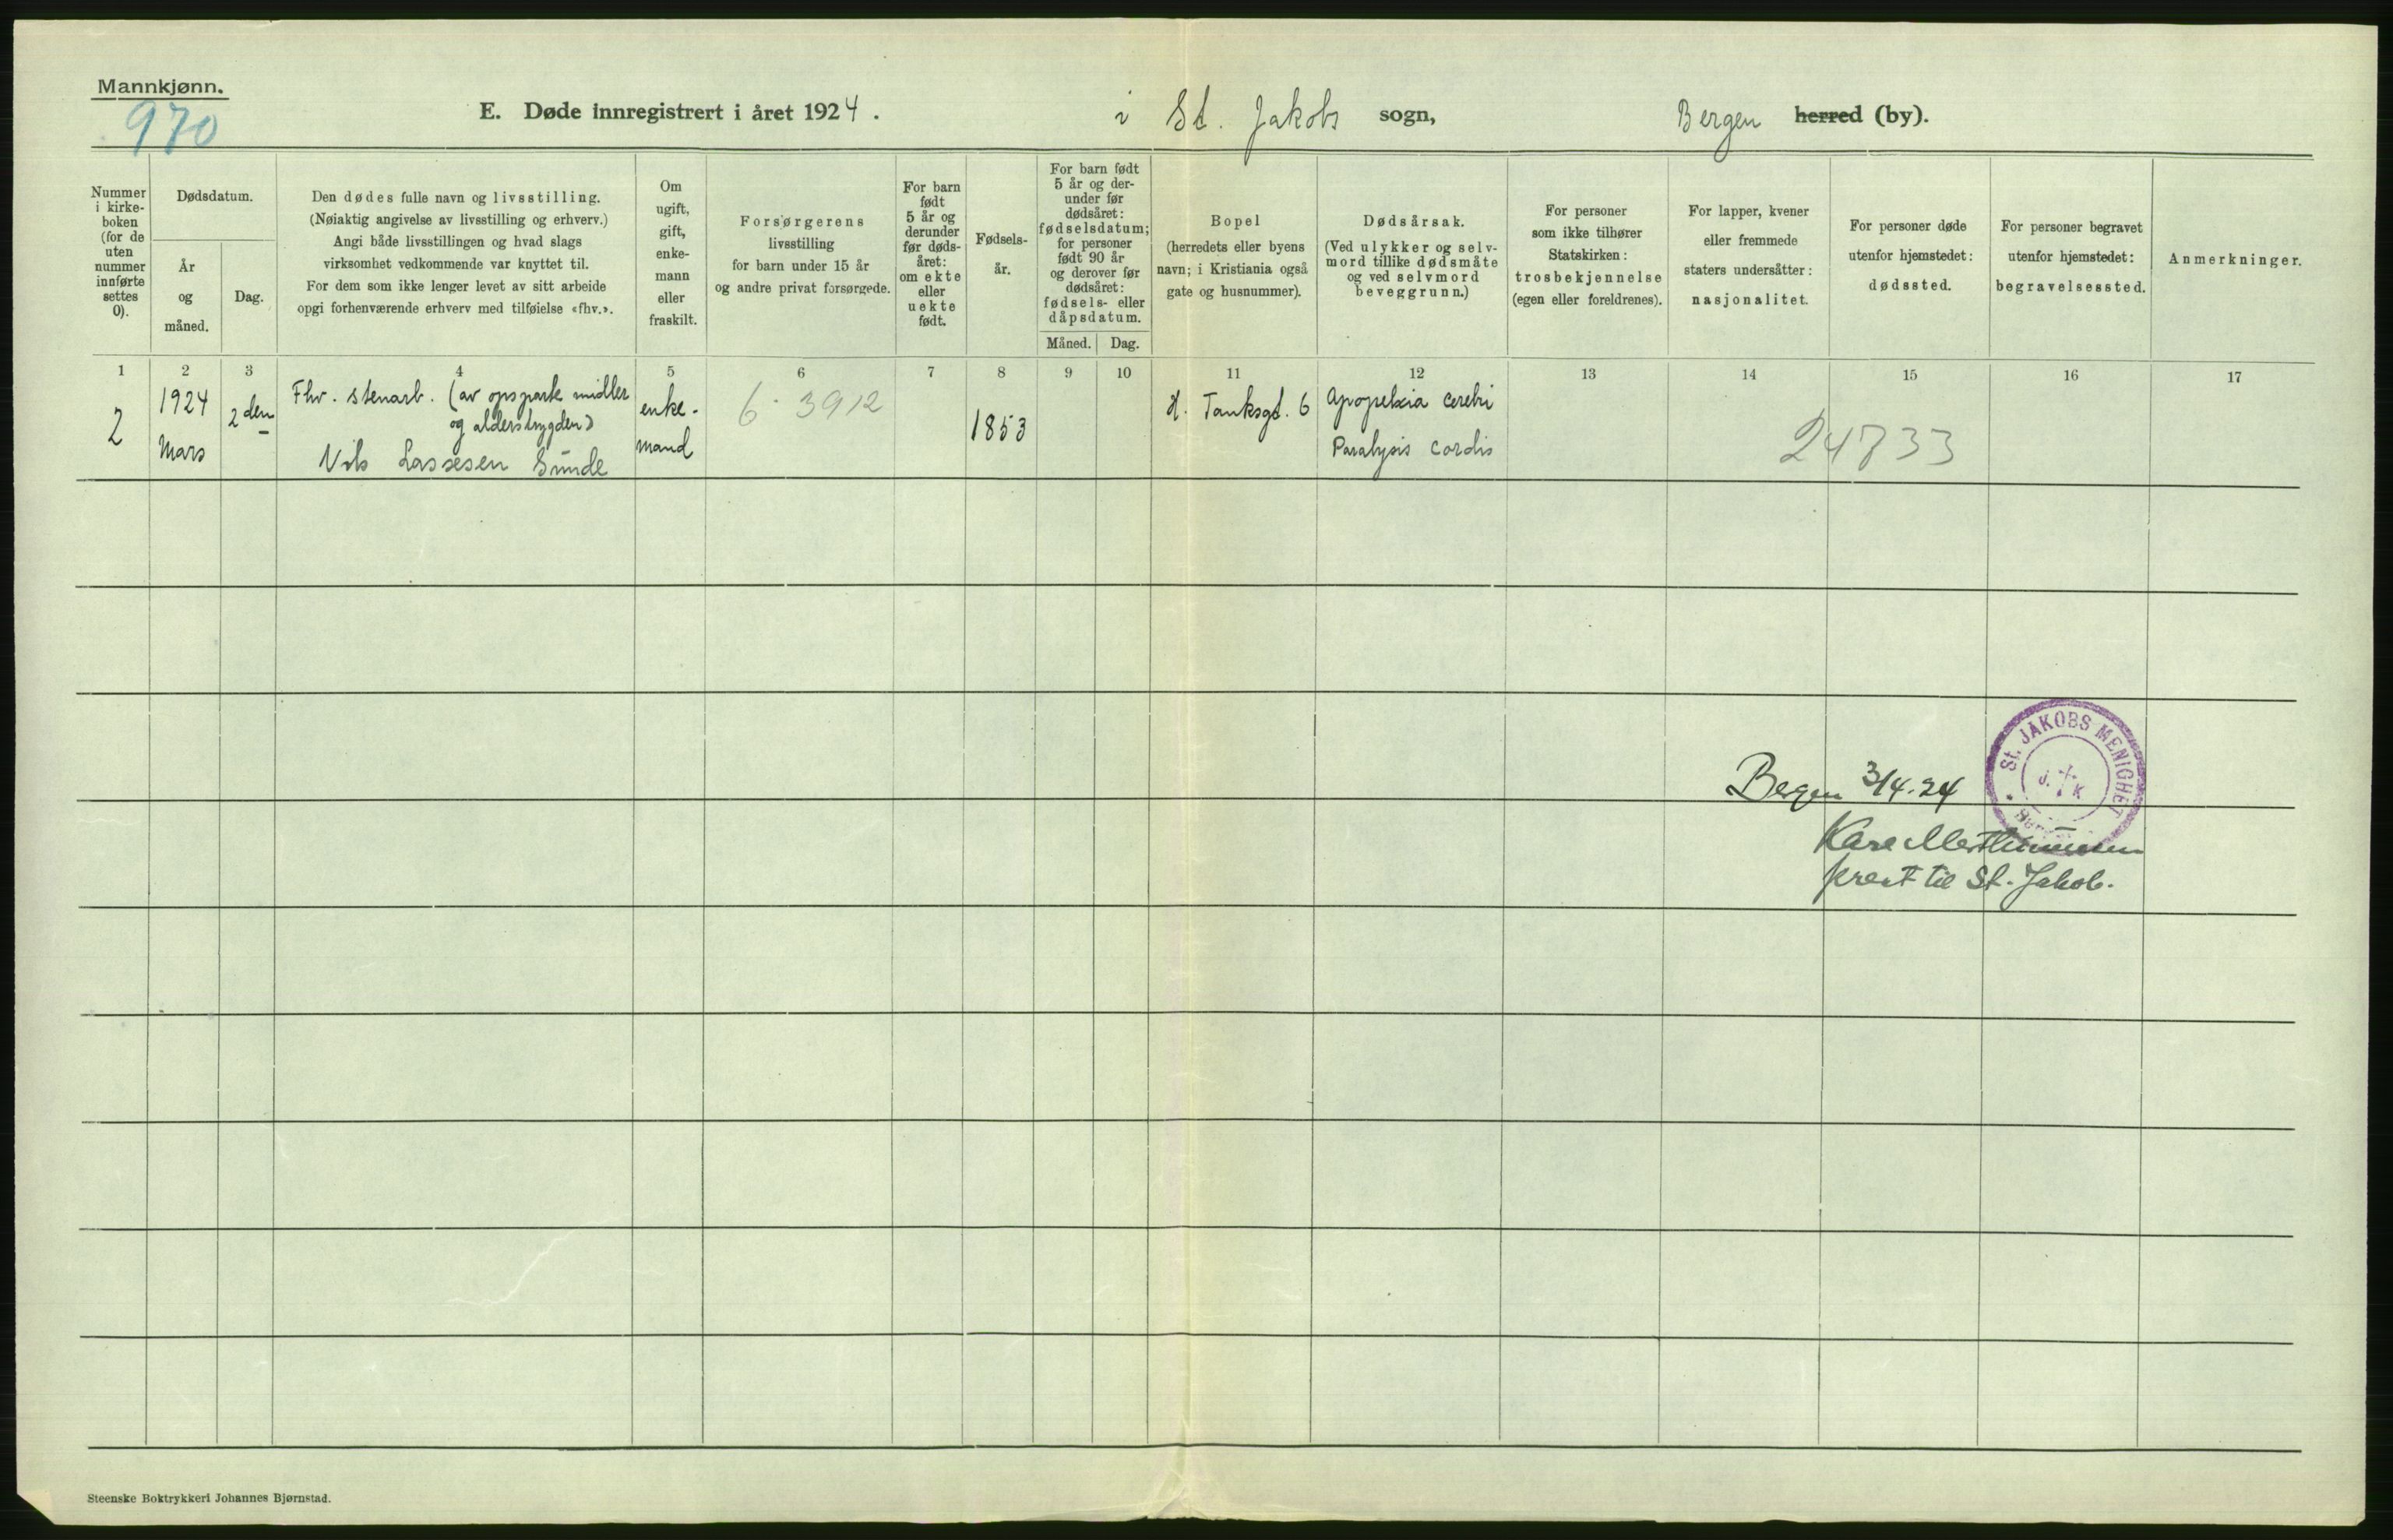 Mannkjønn.
970
E. Døde innregistrert i året 1924. i St. Jakobs sogn, Bergen herred (by).
Nummer i kirke-boken (for de uten nummer innførte settes 0).
Dødsdatum.
År og måned.
Dag.
Den dødes fulle navn og livsstilling.
(Nøiaktig angivelse av livsstilling og erhverv.)
Angi både livsstillingen og hvad slags
virksomhet vedkommende var knyttet til.
For dem som ikke lenger levet av sitt arbeide
opgi forhenværende erhverv med tilføielse «fhv.».
Om ugift, gift, enke-mann eller fraskilt.
Forsørgerens
livsstilling
for barn under 15 år
og andre privat forsørgede.
For barn født 5 år og derunder før døds-året: om ekte eller uekte født.
Fødsels-år.
For barn født 5 år og der-under før dødsåret: fødselsdatum; for personer født 90 år og derover før dødsåret: fødsels- eller dåpsdatum.
Måned. Dag.
Bopel
(herredets eller byens
navn; i Kristiania også
gate og husnummer).
Dødsårsak.
(Ved ulykker og selv-
mord tillike dødsmåte
og ved selvmord
beveggrunn.)
For personer
som ikke tilhører
Statskirken:
trosbekjennelse
(egen eller foreldrenes).
For lapper, kvener
eller fremmede
staters undersåtter:
nasjonalitet.
For personer døde
utenfor hjemstedet:
dødssted.
For personer begravet
utenfor hjemstedet:
begravelsessted.
Anmerkninger.
1 2 3 4 5 6 7 8 9 10 11 12 13 14 15 16 17
2
1924
Mars
2den
Fhv. stenarb. (av opsparte midler
og alderstrygden)
Nils Lassesen Sunde
enke-
mand
6. 3912
1853
H. Tanksgt. 6
Apopelxia cerebri
Paralysis cordis
24733
St. JAKOBS MENIGHET
J. K
Bergen 3/4.24
prest til St. Jakob.
Steenske Boktrykkeri Johannes Bjørnstad.